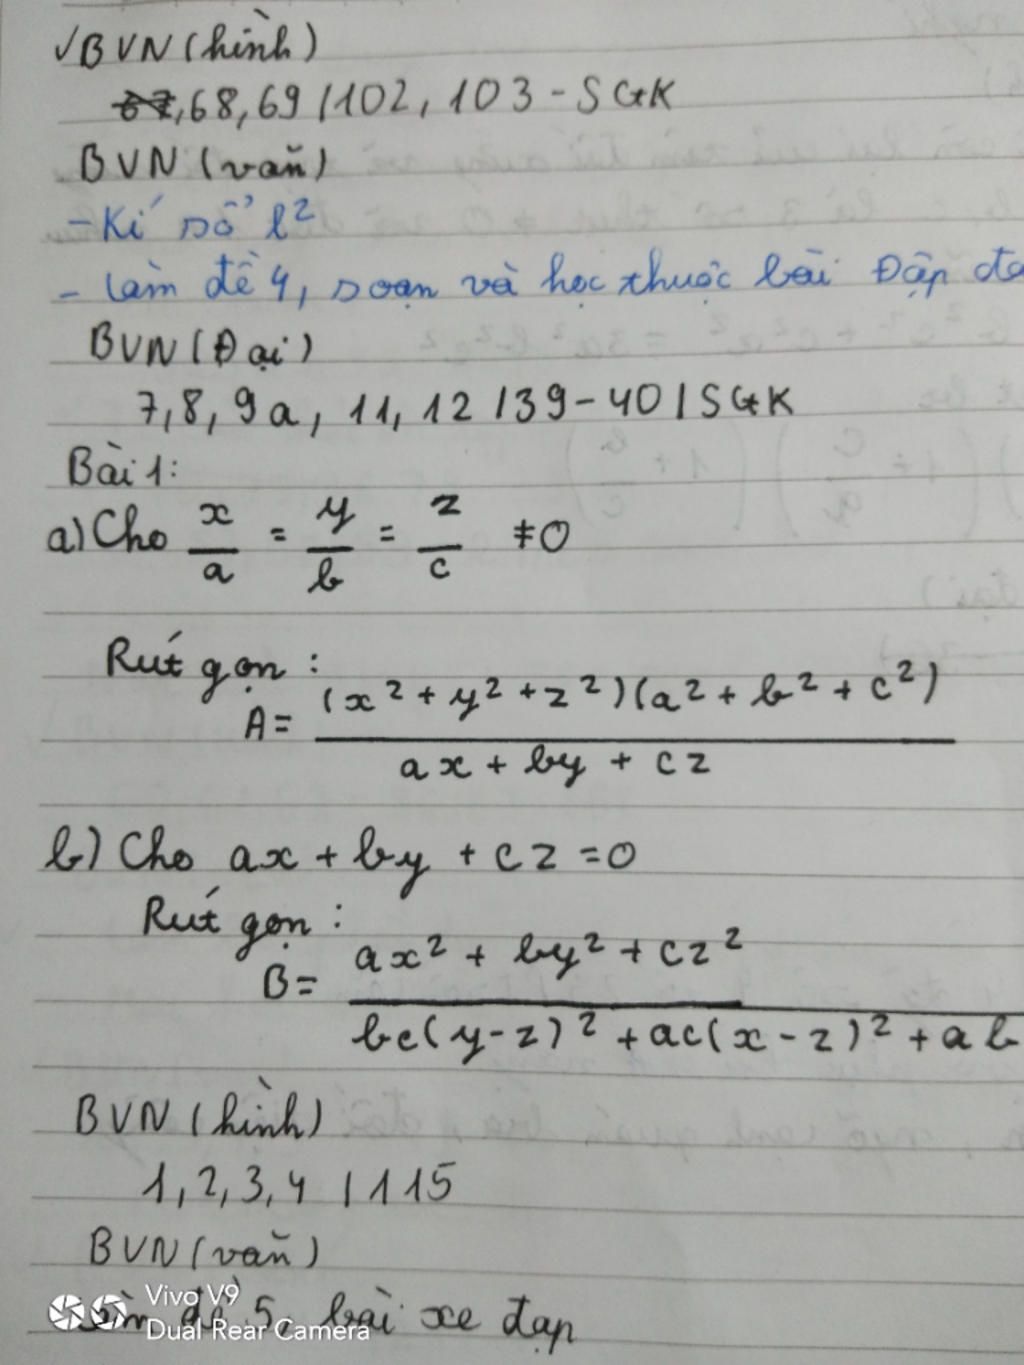 √BVN (hình)
67,68,69/102,103-SGK
BVN (văn)
-Kí sổ l²
-Làm đề 4, soạn và học thuộc bài Đập đá
BVN (Đại)
7,8,9a, 11, 12 /39-40/SGK
Bài 1:
a) Cho x/a = y/b = z/c ≠0
Rút gọn:
A= (x²+y²+z²)(a²+b²+c²) / ax+by+cz
b) Cho ax+by+cz=0
Rút gọn:
B= ax²+by²+cz² / bc(y-z)²+ac(x-z)²+ab
BVN (hình)
1,2,3,4 /115
BVN (văn)
đề 5, bài xe đạp
Vivo V9
Dual Rear Camera